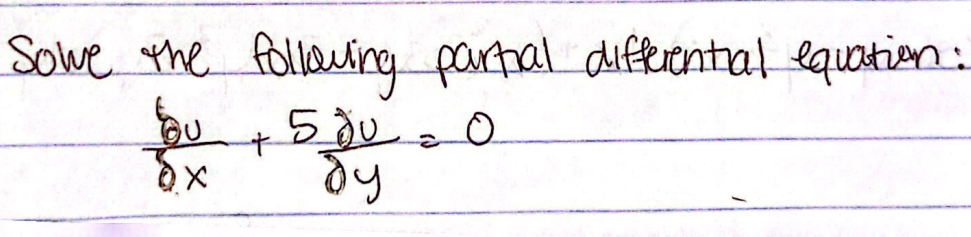 Solve the following partial differential equation:
∂u/∂x + 5 ∂u/∂y = 0